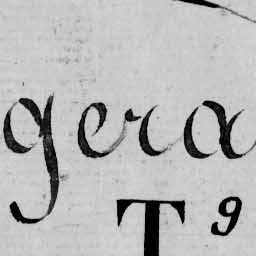 gera
T 9